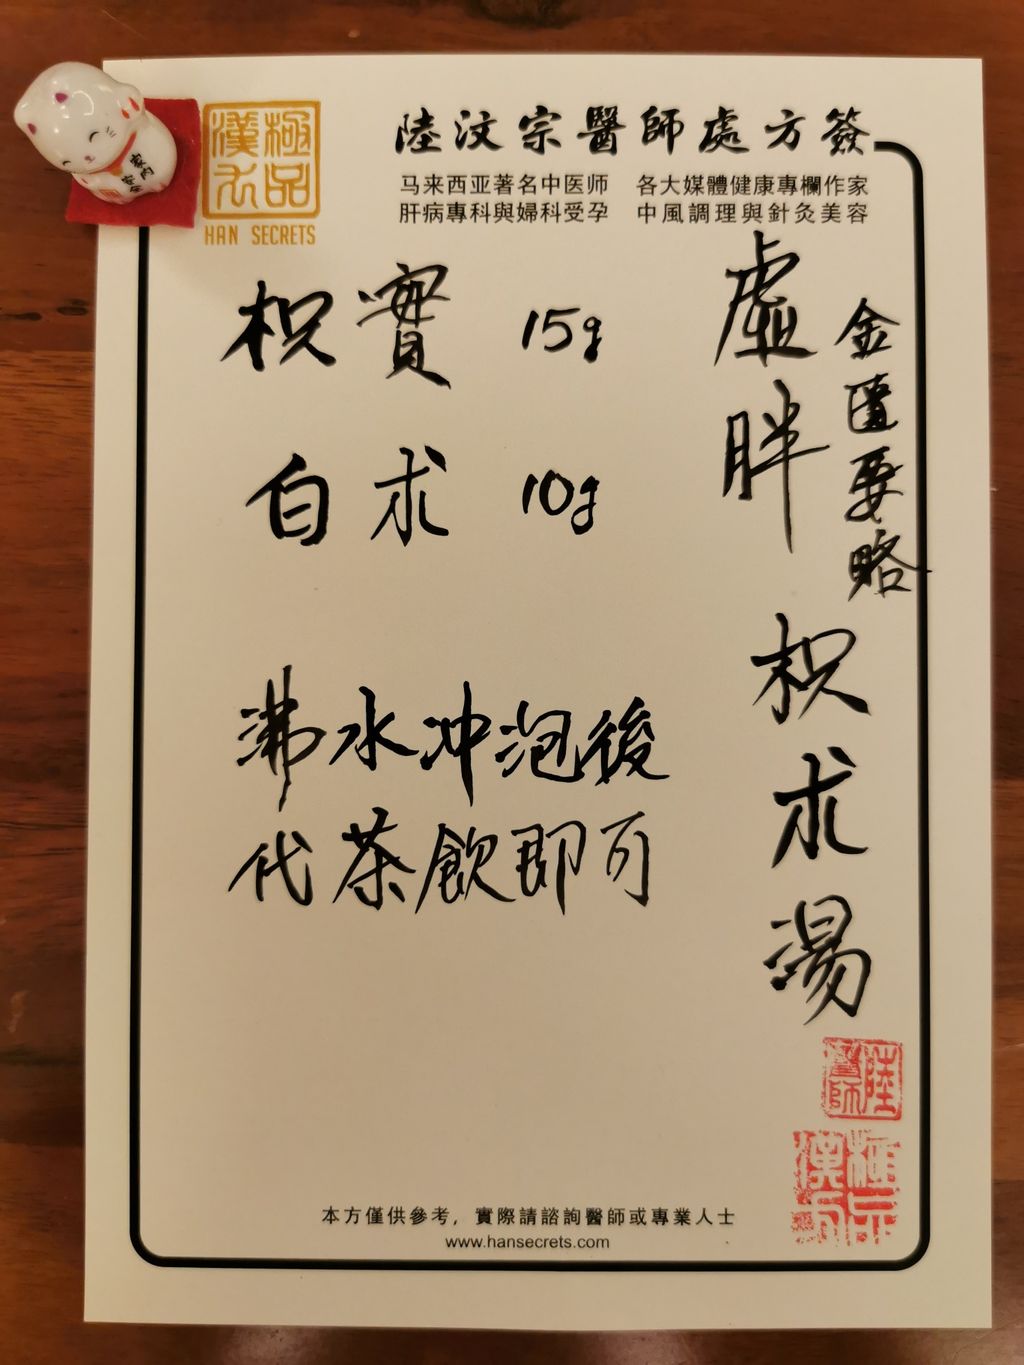 極品
漢方
HAN SECRETS
陸汶宗醫師處方簽
马来西亚著名中医师 各大媒體健康專欄作家
肝病專科與婦科受孕 中風調理與針灸美容
金匱要略
虛胖 枳朮湯
枳實 15g
白朮 10g
沸水冲泡後
代茶飲即可
陸醫師
極品漢方
本方僅供參考，實際請諮詢醫師或專業人士
www.hansecrets.com